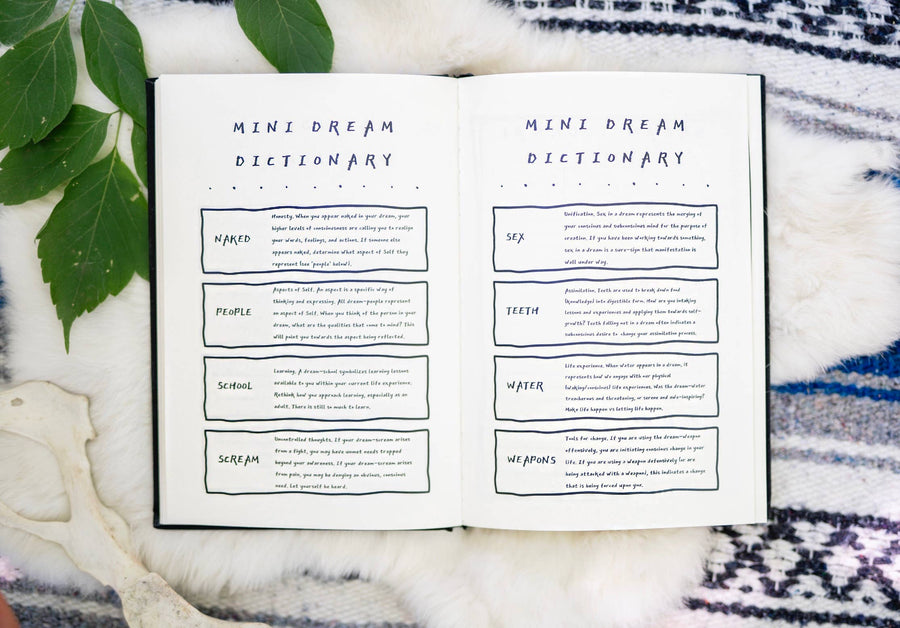 MINI DREAM
DICTIONARY
NAKED
Honesty. When you appear naked in your dream, your
higher levels of consciousness are calling you to realign
your words, feelings, and actions. If someone else
appears naked, determine what aspect of Self they
represent (see "people" below).
PEOPLE
Aspects of Self. An aspect is a specific way of
thinking and expressing. All dream-people represent
an aspect of Self. When you think of the person in your
dream, what are the qualities that come to mind? This
will point you towards the aspect being reflected.
SCHOOL
Learning. A dream-school symbolizes learning lessons
available to you within your current life experience.
Rethink how you approach learning, especially as an
adult. There is still so much to learn.
SCREAM
Uncontrolled thoughts. If your dream-scream arises
from a fight, you may have unmet needs trapped
beyond your awareness. If your dream-scream arises
from pain, you may be denying an obvious, conscious
need. Let yourself be heard.
MINI DREAM
DICTIONARY
SEX
Unification. Sex in a dream represents the merging of
your conscious and subconscious mind for the purpose of
creation. If you have been working towards something,
sex in a dream is a sure-sign that manifestation is
well under way.
TEETH
Assimilation. Teeth are used to break down food
(knowledge) into digestible form. How are you intaking
lessons and experiences and applying them towards self-
growth? Teeth falling out in a dream often indicates a
subconscious desire to change your assimilation process.
WATER
Life experience. When water appears in a dream, it
represents how we engage with our physical
(waking/conscious) life experiences. Was the dream-water
treacherous and threatening, or serene and awe-inspiring?
Make life happen vs letting life happen.
WEAPONS
Tools for change. If you are using the dream-weapon
offensively, you are initiating conscious change in your
life. If you are using a weapon defensively (or are
being attacked with a weapon), this indicates a change
that is being forced upon you.